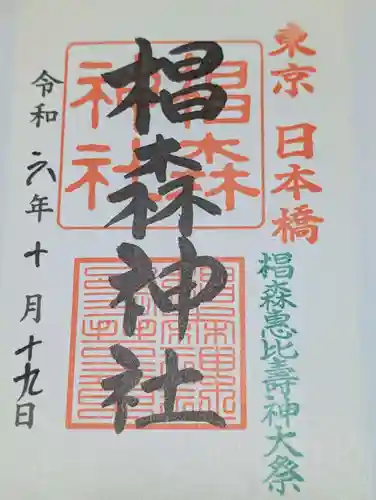 東京 日本橋
椙森恵比壽神大祭
椙森神社
椙森神社
令和六年十月十九日